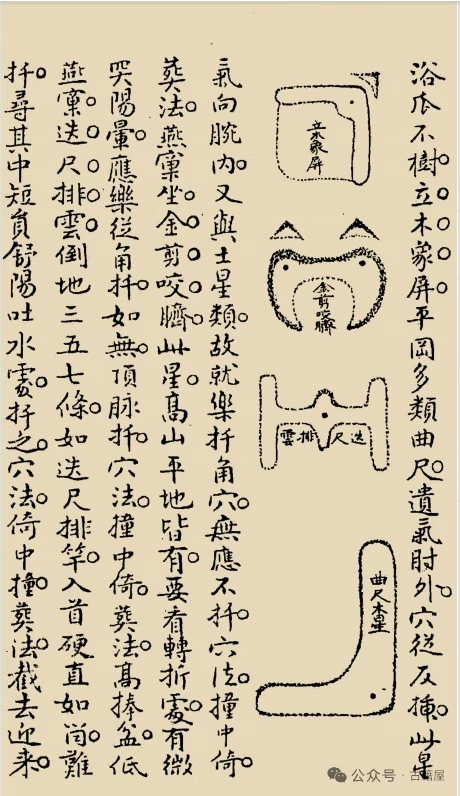 浴瓜不樹立木象屏平岡多類曲尺遺氣肘外穴從反揷此星
立木象屏
金剪咬臍
迭尺排雲
曲尺木星
氣向腕内又與土星類故就樂扦角穴無應不扦穴法撞中倚
葬法燕窠坐金剪咬臍此星高山平地皆有要看轉折處有微
哭陽暈應樂從角扦如無頂脉扦穴法撞中倚葬法高捧盆低
燕窠迭尺排雲倒地三五七條如迭尺排竿入首硬直如難
扦尋其中短負舒陽吐水處扦之穴法倚中撞葬法截去迎来
公众号 · 古籍屋